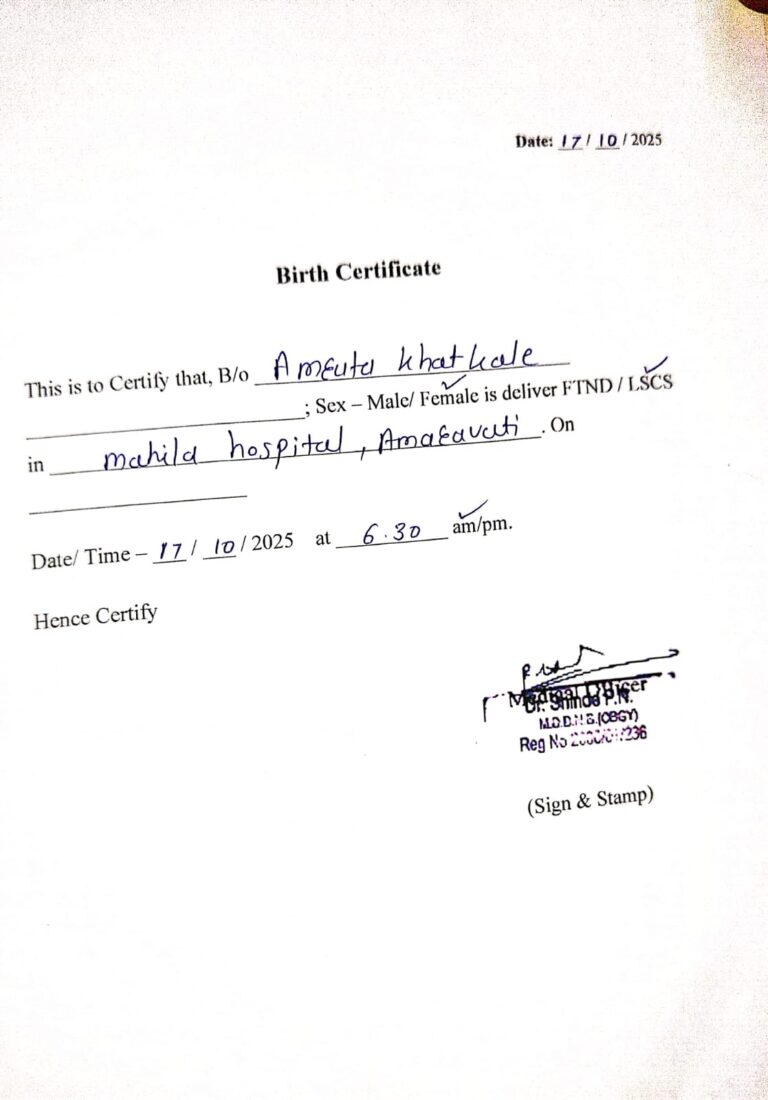 Date: 17 / 10 / 2025
Birth Certificate
This is to Certify that, B/o Amruta khatkale
; Sex – Male/ Female is deliver FTND / LSCS
in mahila hospital, Amaravati . On
Date/ Time – 17 / 10 / 2025 at 6.30 am/pm.
Hence Certify
Medical Officer
Dr. Shinde P.N.
Reg No
(Sign & Stamp)